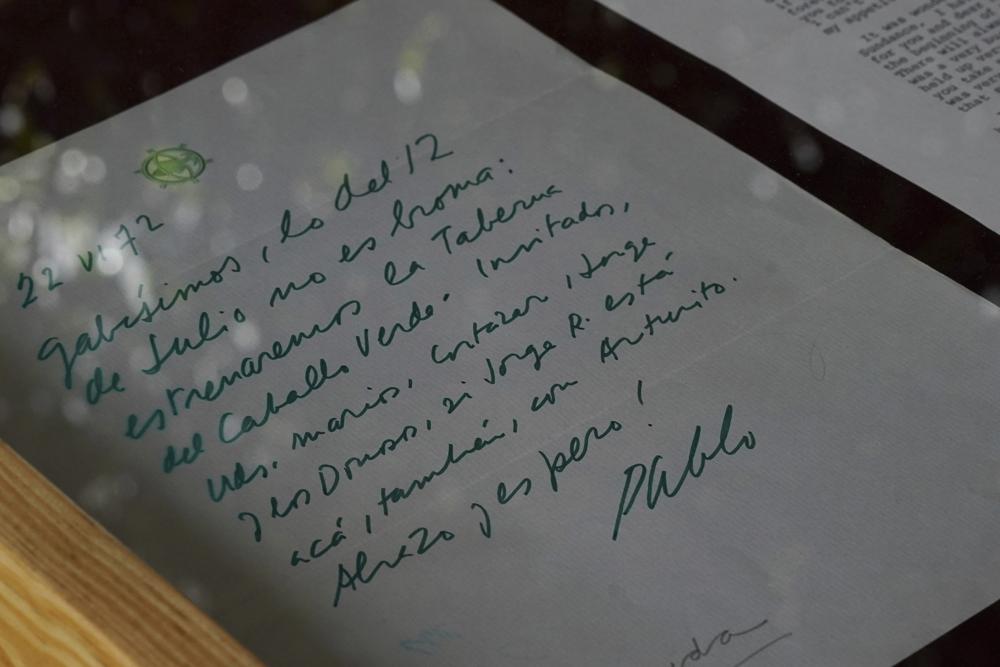 22 VI 72
Gabísimos, lo del 12
de Julio no es broma:
estrenaremos la Taberna
del Caballo Verde. Invitados,
Uds. Marios, Cortázar, Jorge
y los Donoso, si Jorge R. está
acá, también, con Arturito.
Abrazo y espero!
Pablo
It was
Sundance, and
for you and dear
the beginning of
There will
was a very
held up very
you take
was very
that